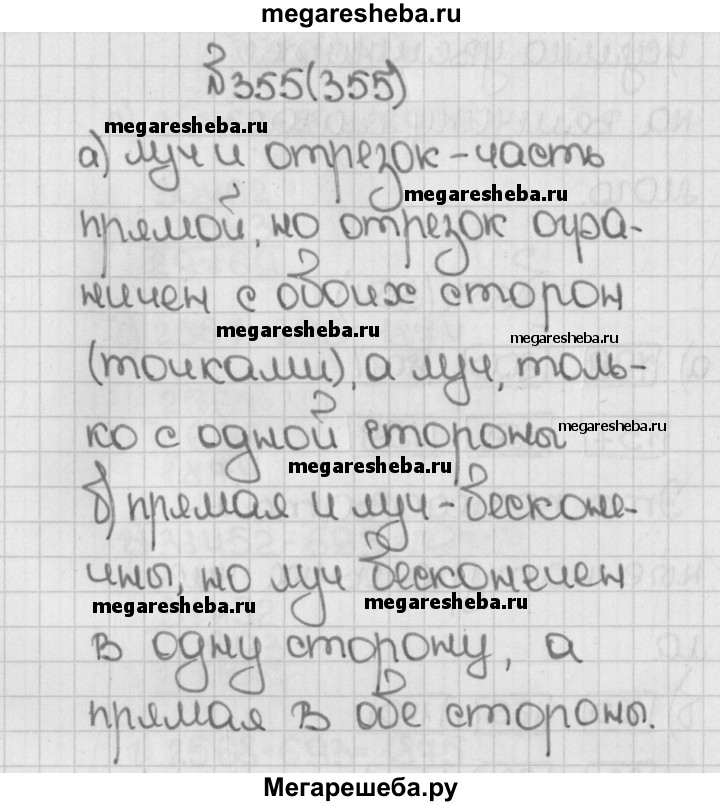 megaresheba.ru
№355(355)
megaresheba.ru
а) луч и отрезок - часть
megaresheba.ru
прямой, но отрезок огра-
ничен с обоих сторон
megaresheba.ru
megaresheba.ru
(точками), а луч, толь-
ко с одной стороны
megaresheba.ru
megaresheba.ru
б) прямая и луч - бесконе-
чны, но луч бесконечен
megaresheba.ru
megaresheba.ru
в одну сторону, а
прямая в обе стороны.
Мегарешеба.ру